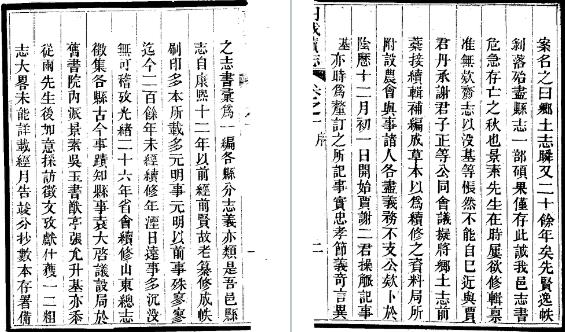 之志書彙為一編各縣分志義亦類是吾邑縣
志自康熙十二年以前經前賢故老纂修成帙
刷印多本所載多元明事元明以前事殊寥寥
迄今二百餘年未經續修年湮日遠事多沉没
無可稽攷光緒二十六年省會續修山東總志
徵集各縣古今事蹟知縣事袁大啓議設局於
舊書院內派景素吳王書猷亭張尤升基亦忝
從兩先生後加意採訪徵文攷獻什獲一二粗
志大畧未能詳載經月告竣分抄數本存署備
城續志 卷之一 序 二
案名之曰鄉土志瞬又二十餘年矣先賢逸帙
剝落殆盡縣志一部碩果僅存此誠我邑志書
危急存亡之秋也景素先生在時屢欲修輯稟
准無欵齋志以没基等悵然不能自已近與賈
君丹承謝君子正等公同會議擬將鄉土志前
葉接續輯補編成草本以為續修之資料局所
附設農會與事諸人各盡義務不支公欵卜於
陰歷十二月初一日開始賈謝二君操觚記事
基亦時為釐訂之所記事實忠孝節義奇言異